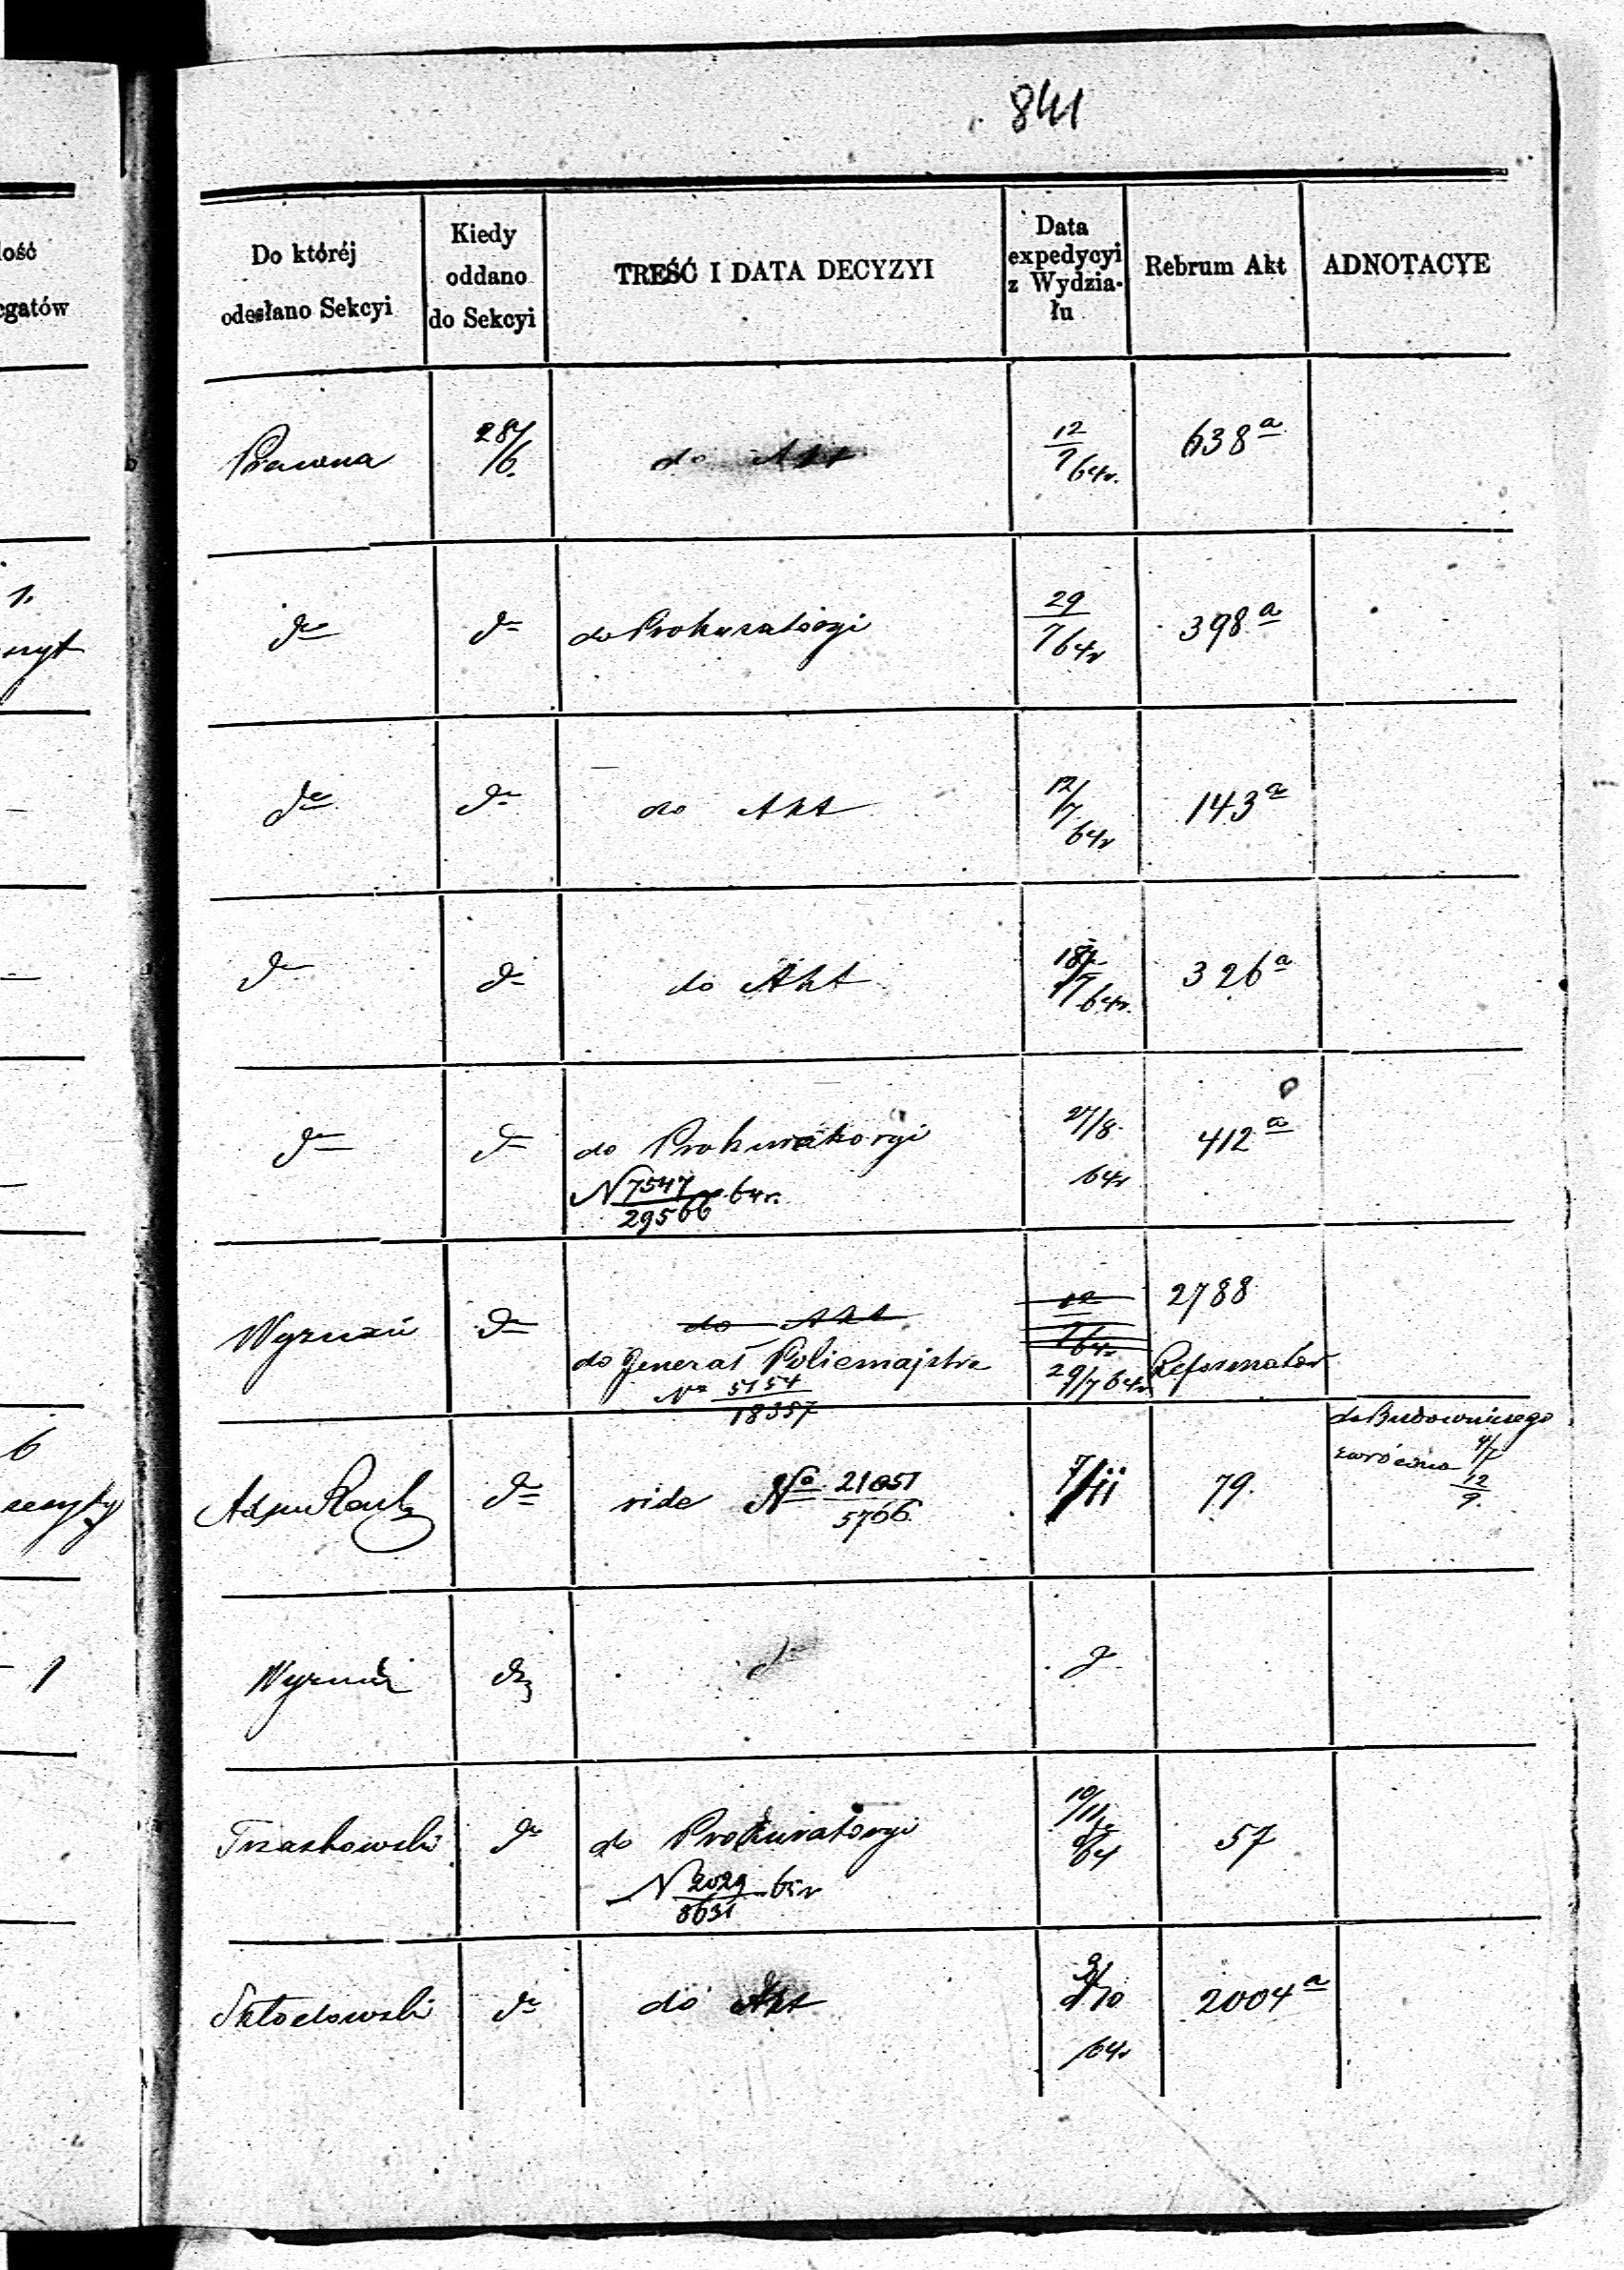 841
lość
egatów
Do któréj
odesłano Sekcyi
Kiedy
oddano
do Sekcyi
TREŚĆ I DATA DECYZYI
Data
expedycyi
z Wydzia-
łu
Rebrum Akt
ADNOTACYE
Prawna
28/
/6.
do Akt
12
7 64r.
638 a
do
do
do Prokuratoryi
29
7 64r
398 a
do
do
do Akt
12/
7
64r
143 a
do
do
do Akt
18/
7 64r.
326 a
do
do
do Prokuratoryi
N 7547
29566 64r.
27/8
64r
412 a
Wyznań
do
do Akt
do Generał Policmajstra
No 5154
18357
12
7 64r
29/7 64r
2788
Reformatów
do
vide No 21051
5766.
7/11
79.
do Budowniczego
4/7
zwrócono
12
9.
do
do
Trzaskowski
do
do Prokuratoryi
N 2029
8631 65r
10/11
64
57
Skłodowski
do
do Akt
3/10
64r
2004 a